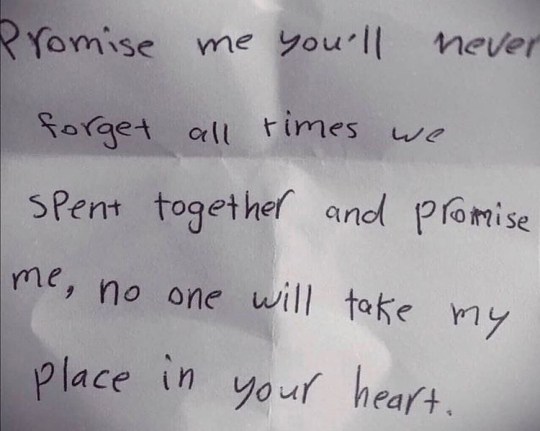 Promise me you'll never
forget all times we
spent together and promise
me, no one will take my
place in your heart.